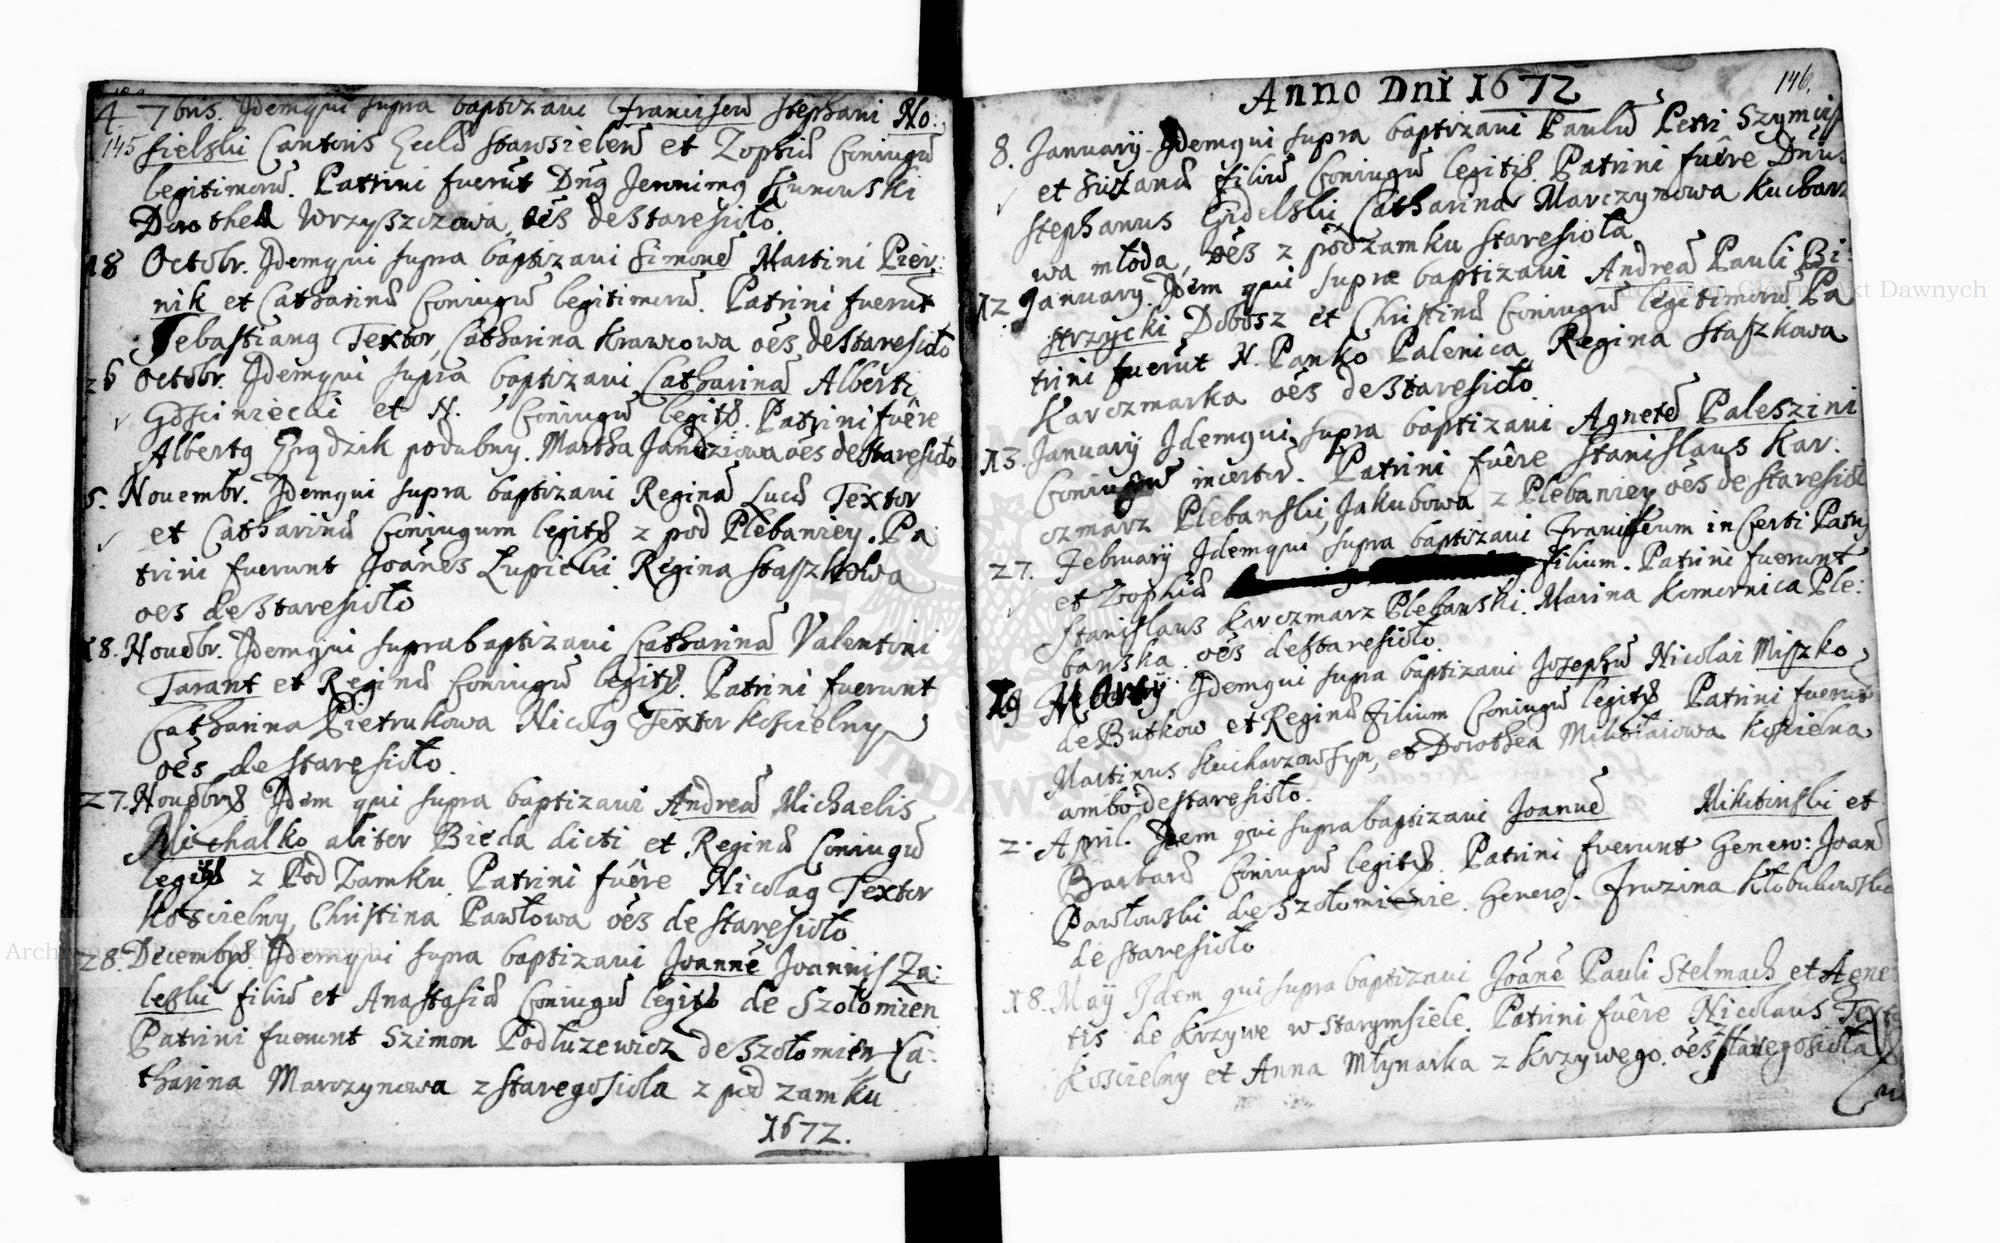 4 7bris. Idemqui supra baptizavi Franciscū Stephani No:
145 sielski Cantoris Eccle Starosielen̄ et Zophiā Coniugū
legitimorū. Patrini fuerūt Dn̄9 Jeronim9
Dorothea Wrzyszczowa, oēs de Staresioło.
18 Octobr. Idemqui supra baptizavi Simonē Martini Pier:
nik et Catharinā Coniugū legitimorū. Patrini fuerūt
Sebastian9 Textor, Catharina Krawcowa oēs de Staresioło
26 Octobr. Idemqui supra baptizavi Catharinā Alberti
Gościniecki et N. Coniugū legit8. Patrini fuēre
Albert9 podubny. Martha Jandziowa oēs de Staresioło
5. Novembr. Idemqui supra baptizavi Reginā Lucā Textor
et Catharinā Coniugum legit8 z pod Plebaniey. Pa:
trini fuerunt Joānes Łupicki Regina Staszkowa
oes de Staresioło
18. Novēbr. Idemqui supra baptizavi Catharinā Valentini
Tarant et Reginā Coniugū legit8. Patrini fuerunt
Catharina Pietrukowa Nicol9 Textor Koscielny
oēs de Staresioło.
27. Novēbr8 Idem qui supra baptizavi Andreā Michaelis
Michalko aliter Bieda dicti et Reginā Coniugū
legit8 z Pod Zamku Patrini fuēre Nicola9 Textor
Koscielny, Christina Pawłowa oēs de Staresioło
28. Decembr8. Idemqui supra baptizavi Joannē Joannis Za:
leski filiū et Anastasiā Coniugū legit8 de Szołomien
Patrini fuerunt Szimon Podluzewicz de Szołomien Ca:
tharina Marczynowa z Staregosioła z pod zamku
1672.
Anno Dni 1672
146.
8. January. Idemqui supra baptizavi Paulū Petri
et Suzannā filiū Coniugū legit8. Patrini fuēre Dn̄us
Stephanus Gidelski Catharina Marczynowa Kucharz
wa młoda, oēs z pod zamku Staresioła
12. January. Idem qui supra baptizavi Andreā Pauli Bi:
strzycki Dobosz et Christinā Coniugū legitimorū Pa
trini fuerūt N. Panko Palenica Regina Staszkowa
Karczmarka oēs de Staresioło.
13. January Idemqui supra baptizavi Agnetē Paleszini
Coniugū incertor. Patrini fuēre Stanislaus Kar:
czmarz Plebanski, Jakubowa z Plebaniey oēs de Staresioł
27. February Idemqui supra baptizavi Franciscum incerti Patris
et Zophiā filium. Patrini fuerunt
Stanislaus Karczmarz Plebanski. Marina Komornica Ple:
banska oēs de Staresioło.
19 Marty Idemqui supra baptizavi Josephū Nicolai Miszko
de Butkow et Reginā filium Coniugū legit8 Patrini fuerūt
Martinus Kucharzow syn, et Dorothea Mikołaiowa Koscielna
ambo de Staresioło.
2. April. Idem qui supra baptizavi Joannē Mikitinski et
Barbarā Coniugū legit8. Patrini fuerunt Gener: Joan̄
Pawłowski de Szołomienie. Generos. Fruzina Kłobukowska
de Staresioło
18. May Idem qui supra baptizavi Joānē Pauli Stelmach et Agne
tis de Krzywe w Starymsiele. Patrini fuēre Nicolaus Texto
Koscielny et Anna Młynarka z Krzywego. oēs Staregosioła